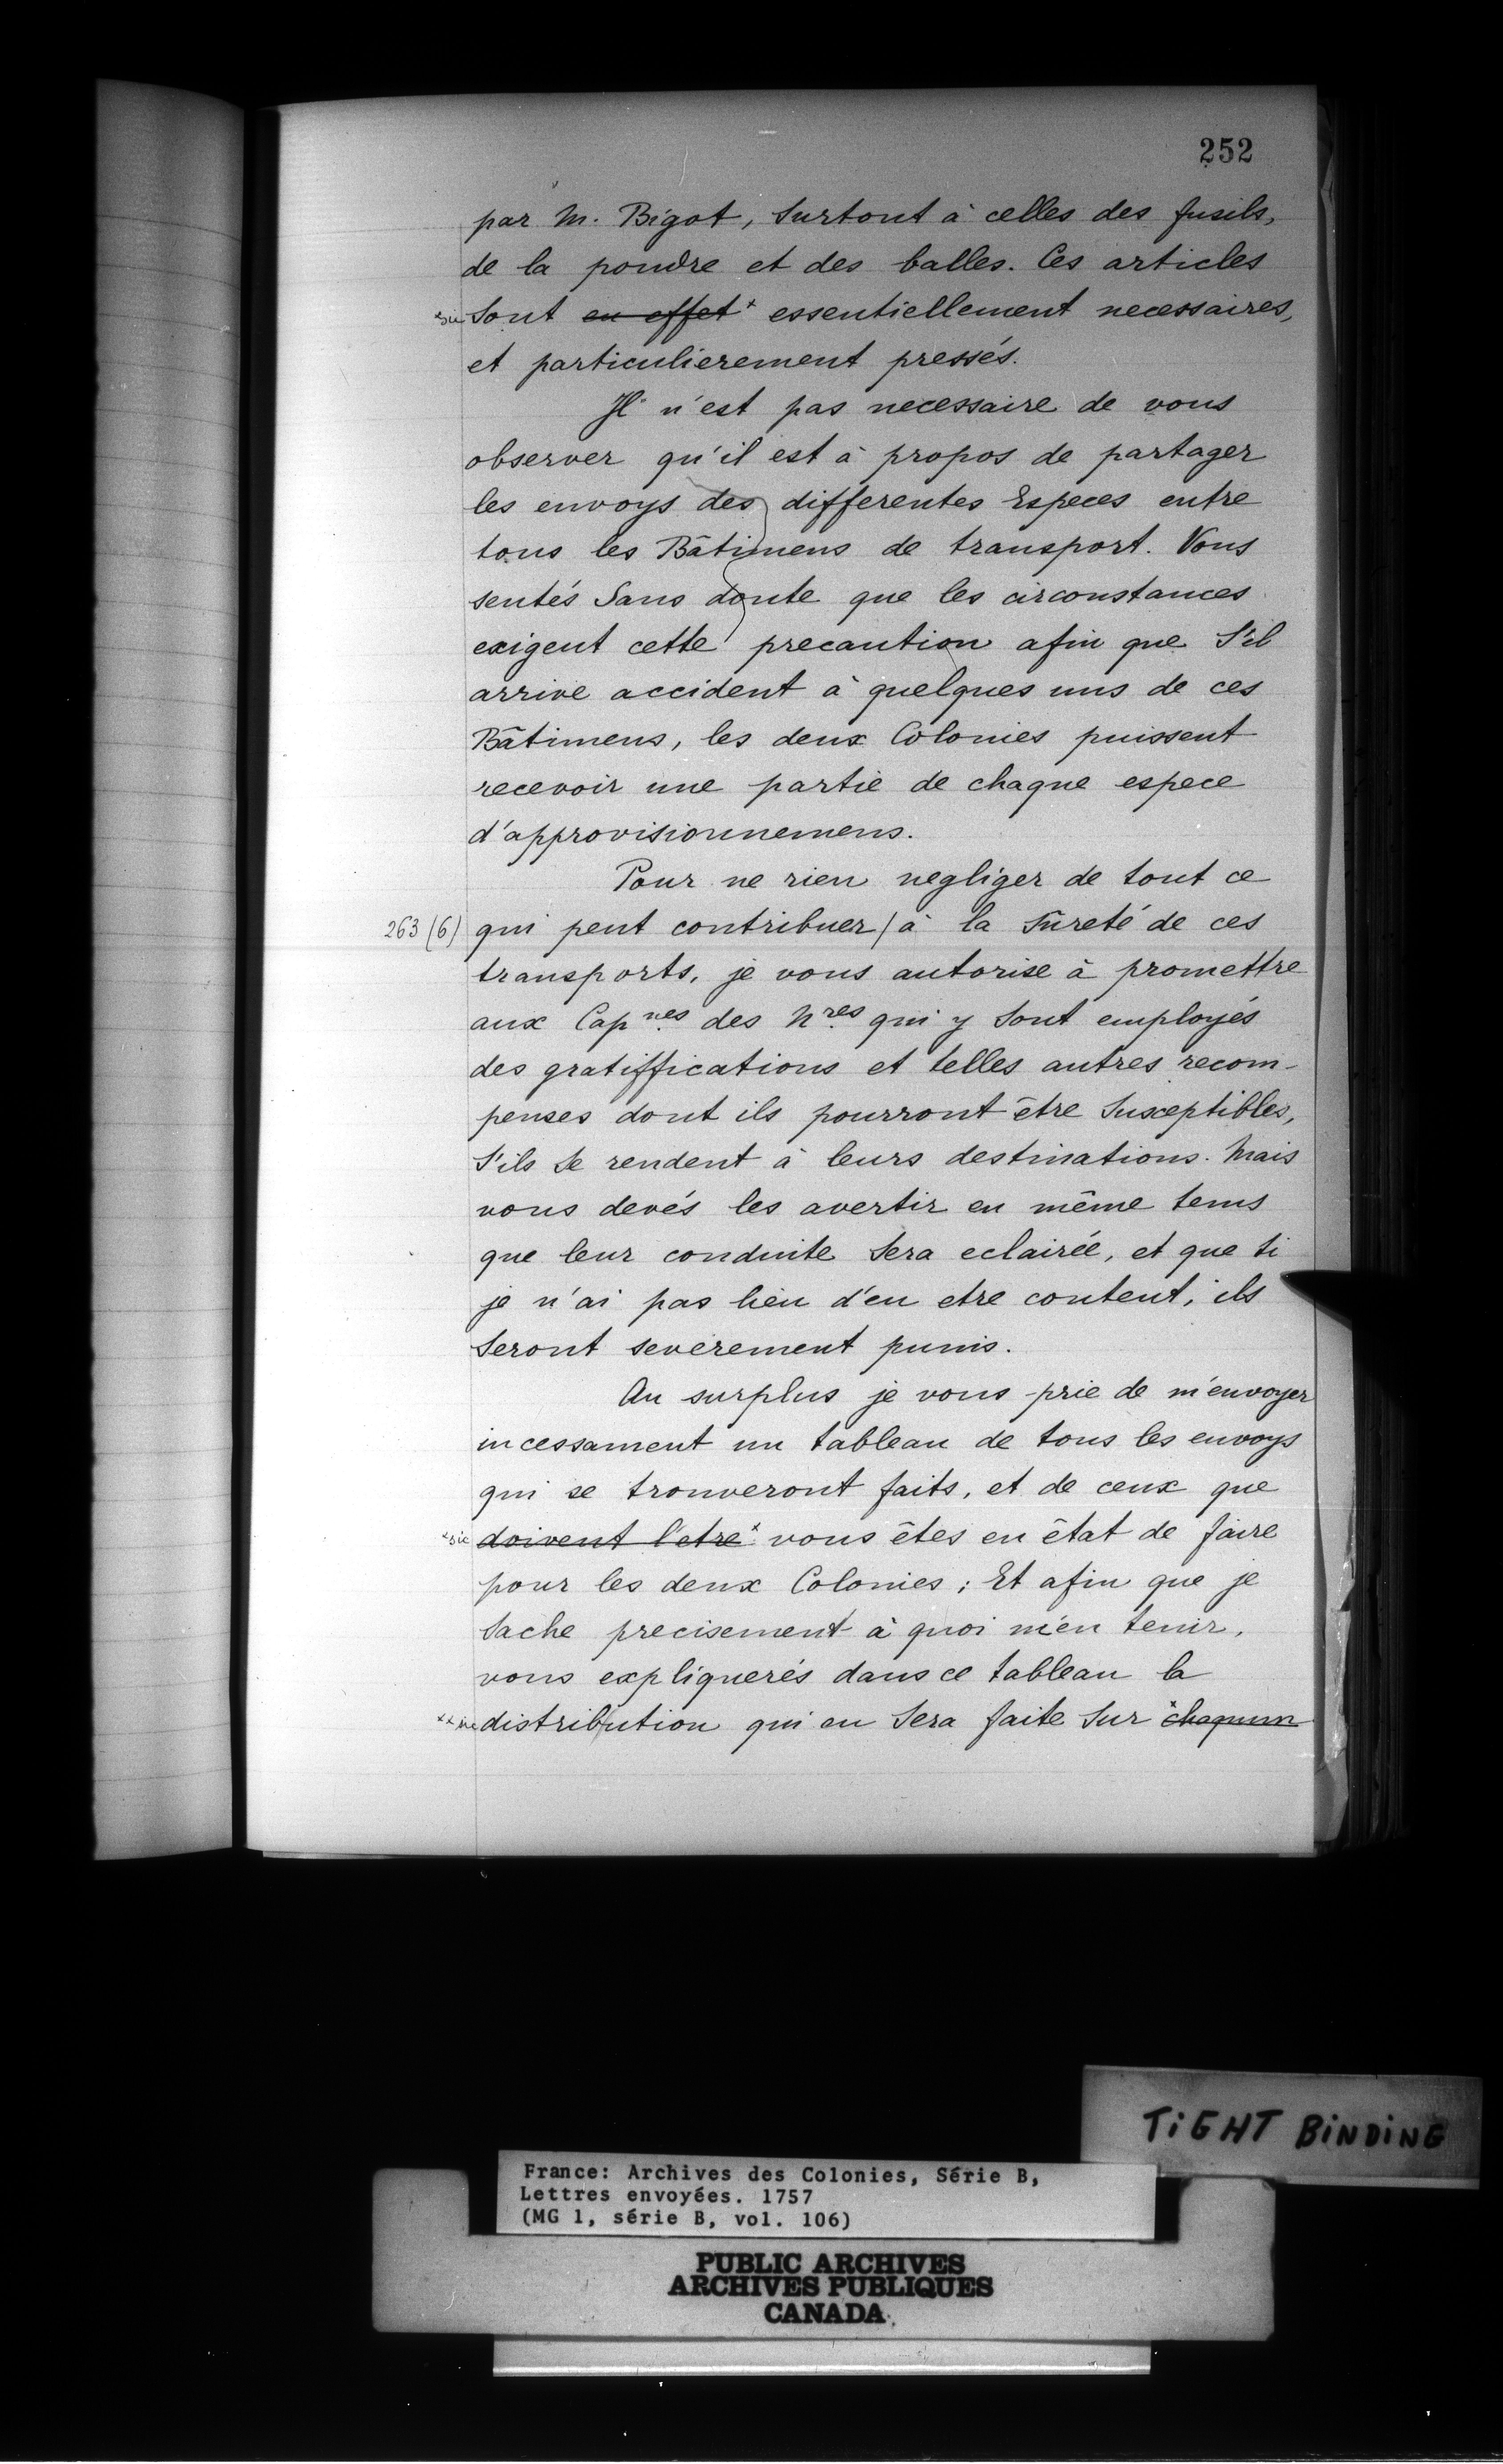 252
par M. Bigot, surtout à celles des fusils,
de la poudre et des balles. Ces articles
*sic sont en effet* essentiellement necessaires,
et particulierement pressés.
Il n'est pas necessaire de vous
observer qu'il est à propos de partager
les envoys des differentes Especes entre
tous les Bâtimens de transport. Vous
sentés sans doute que les circonstances
exigent cette precaution afin que s'il
arrive accident à quelques uns de ces
Bâtimens, les deux Colonies puissent
recevoir une partie de chaque espece
d'approvisionnemens.
Pour ne rien negliger de tout ce
263 (6) qui peut contribuer / à la sûreté de ces
transports, je vous autorise à promettre
aux Cap.nes des N.res qui y sont employés
des gratiffications et telles autres recom-
penses dont ils pourront être susceptibles,
s'ils se rendent à leurs destinations. Mais
vous devés les avertir en même tems
que leur conduite sera eclairée, et que si
je n'ai pas lieu d'en etre content, ils
seront severement punis.
Au surplus je vous prie de m'envoyer
incessament un tableau de tous les envoys
qui se trouveront faits, et de ceux que
*sic doivent l'etre* vous êtes en état de faire
pour les deux Colonies; Et afin que je
sache precisement à quoi m'en tenir,
vous expliquerés dans ce tableau la
distribution qui en sera faite sur chaqun
TIGHT BINDING
France: Archives des Colonies, Série B,
Lettres envoyées. 1757
(MG 1, série B, vol. 106)
PUBLIC ARCHIVES
ARCHIVES PUBLIQUES
CANADA